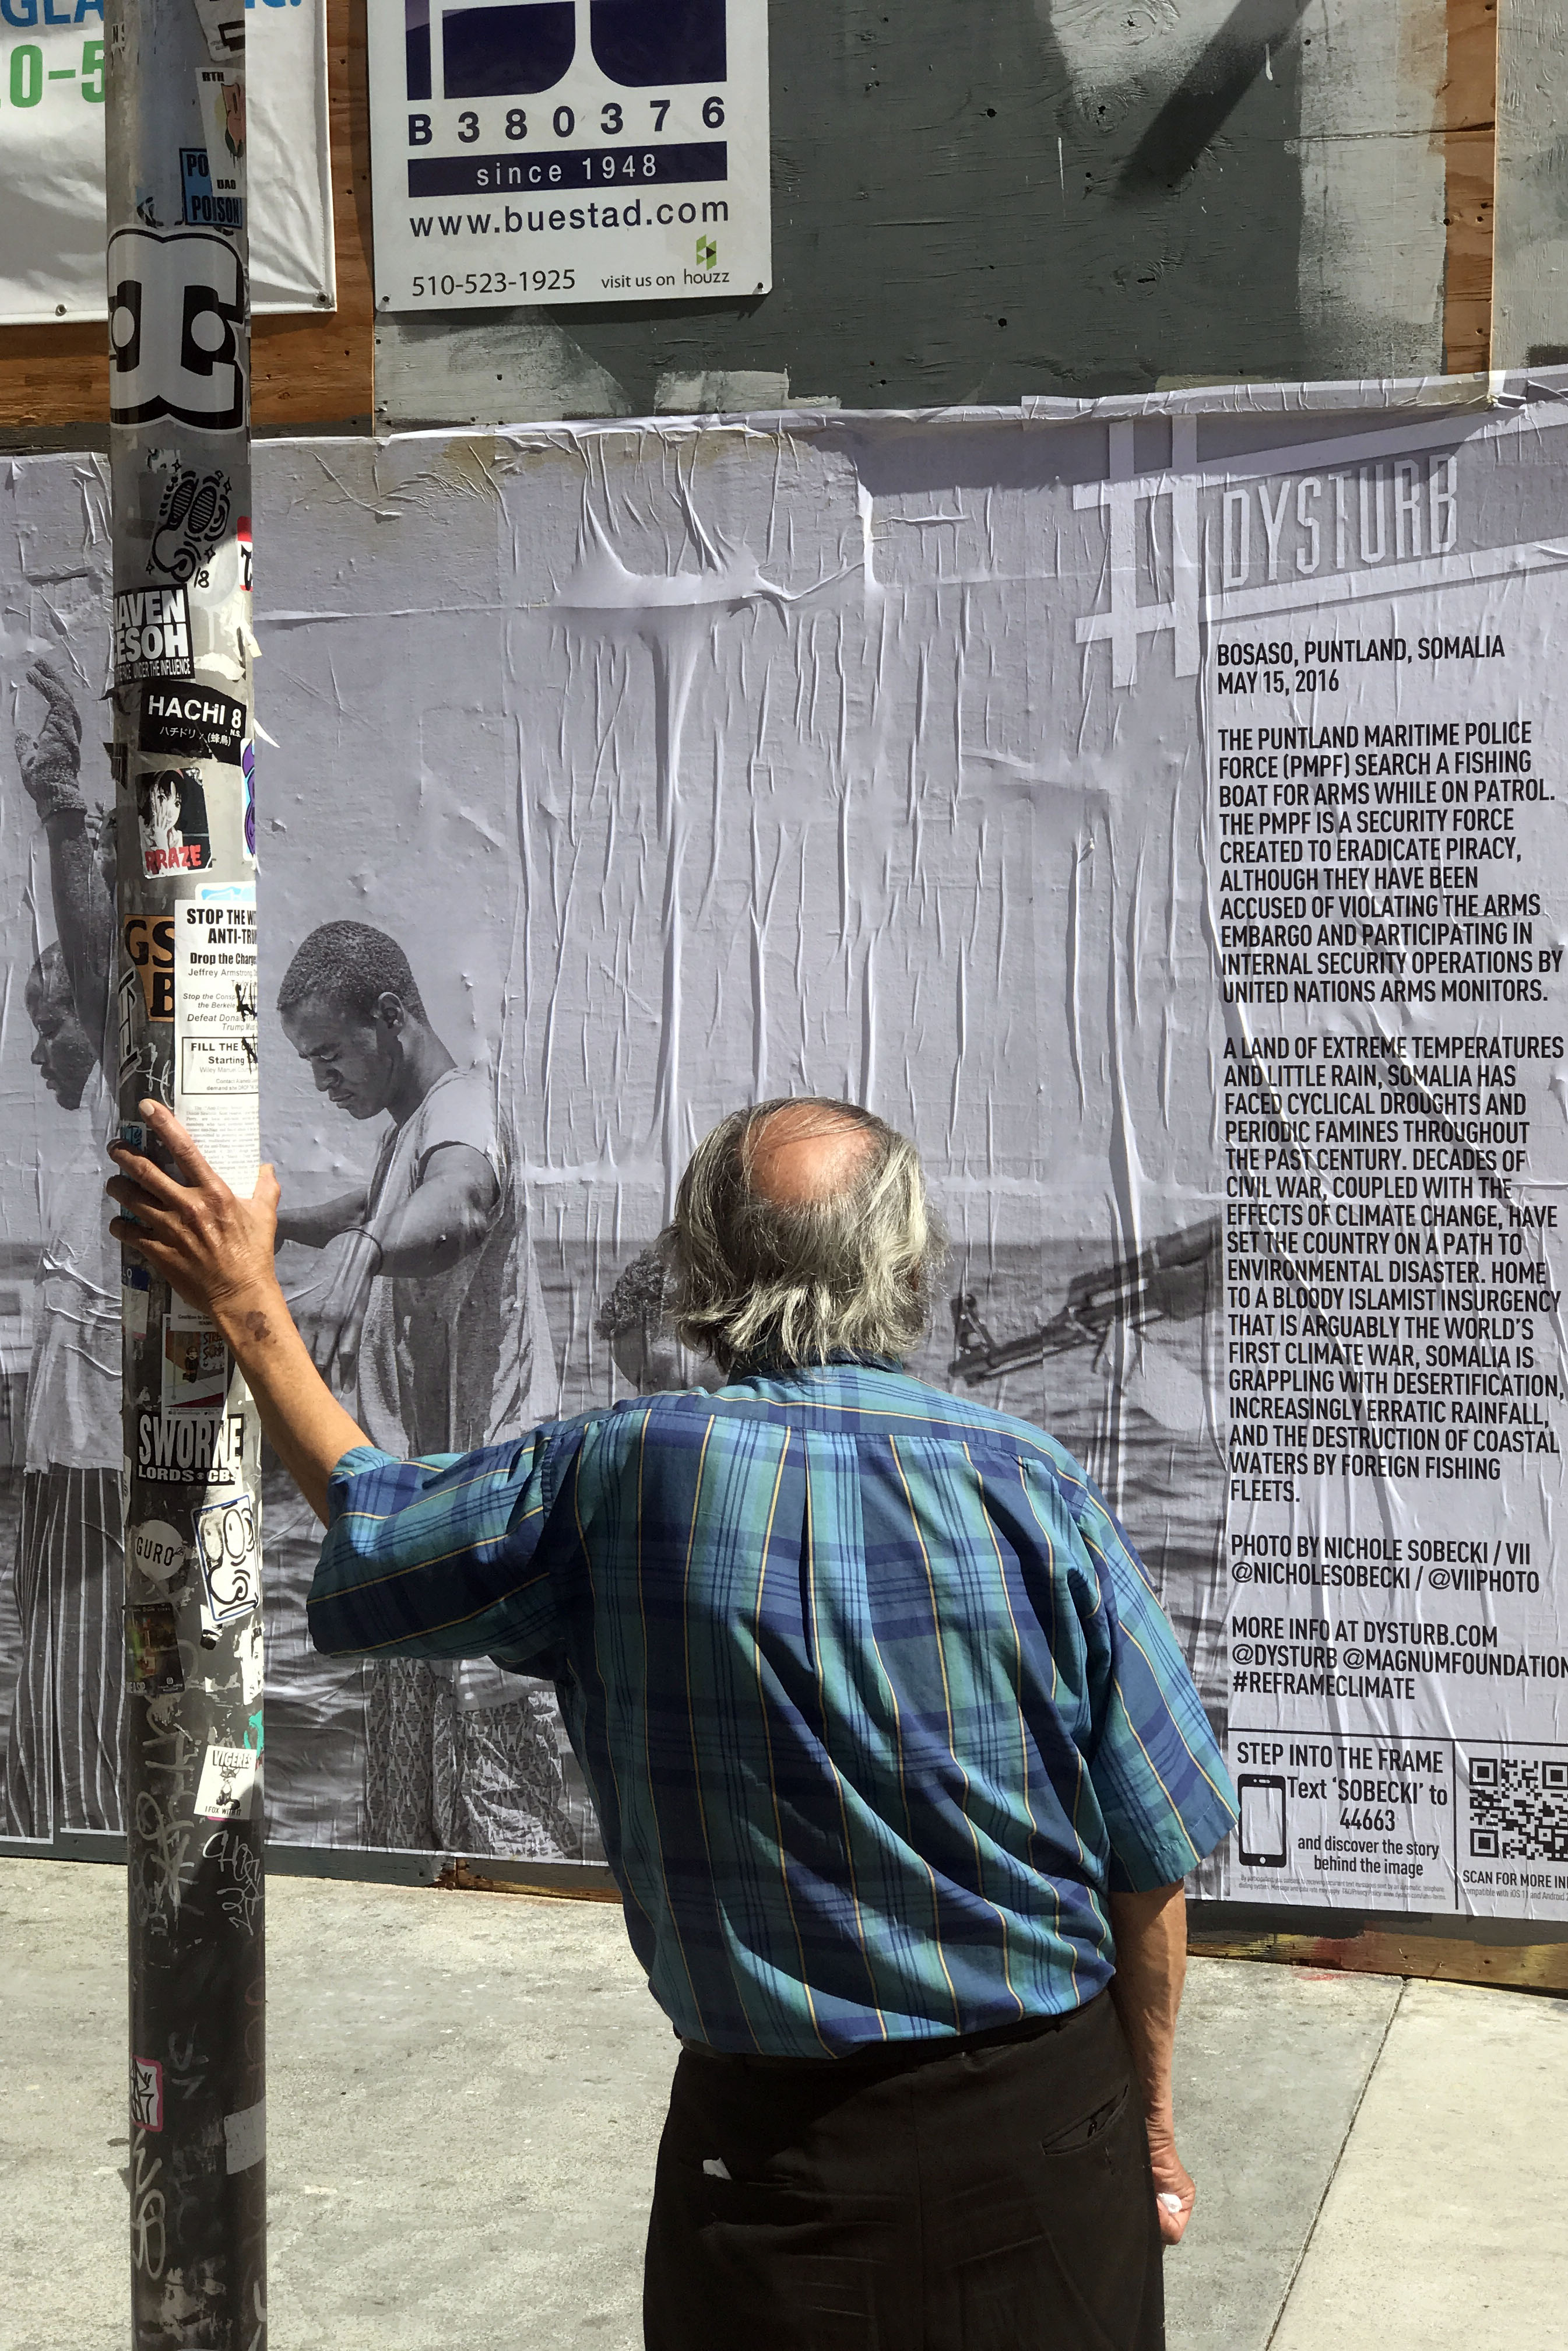 GLA
0-5
B380376
since 1948
www.buestad.com
510-523-1925
visit us on houzz
RTH
BAD
PO
POISON
/8
AVEN
ESOH
UNDER THE INFLUENCE
HACHI 8
N.S.
ハチドリ (蜂鳥)
CRAZE
GS
B
STOP THE WIT
ANTI-TRU
Drop the Charge
Jeffrey Armstrong
Stop the Consp
the Berkele
Defeat Dona
Trump
FILL THE
Starting
Wiley Manuel
SWORNE
LORDS CBS
GURO
VIGERES
I FOX WITH IT
# DYSTURB
BOSASO, PUNTLAND, SOMALIA
MAY 15, 2016
THE PUNTLAND MARITIME POLICE
FORCE (PMPF) SEARCH A FISHING
BOAT FOR ARMS WHILE ON PATROL.
THE PMPF IS A SECURITY FORCE
CREATED TO ERADICATE PIRACY,
ALTHOUGH THEY HAVE BEEN
ACCUSED OF VIOLATING THE ARMS
EMBARGO AND PARTICIPATING IN
INTERNAL SECURITY OPERATIONS BY
UNITED NATIONS ARMS MONITORS.
A LAND OF EXTREME TEMPERATURES
AND LITTLE RAIN, SOMALIA HAS
FACED CYCLICAL DROUGHTS AND
PERIODIC FAMINES THROUGHOUT
THE PAST CENTURY. DECADES OF
CIVIL WAR, COUPLED WITH THE
EFFECTS OF CLIMATE CHANGE, HAVE
SET THE COUNTRY ON A PATH TO
ENVIRONMENTAL DISASTER. HOME
TO A BLOODY ISLAMIST INSURGENCY
THAT IS ARGUABLY THE WORLD'S
FIRST CLIMATE WAR, SOMALIA IS
GRAPPLING WITH DESERTIFICATION,
INCREASINGLY ERRATIC RAINFALL,
AND THE DESTRUCTION OF COASTAL
WATERS BY FOREIGN FISHING
FLEETS.
PHOTO BY NICHOLE SOBECKI / VII
@NICHOLESOBECKI / @VIIPHOTO
MORE INFO AT DYSTURB.COM
@DYSTURB @MAGNUMFOUNDATION
#REFRAMECLIMATE
STEP INTO THE FRAME
Text 'SOBECKI' to
44663
and discover the story
behind the image
SCAN FOR MORE IN